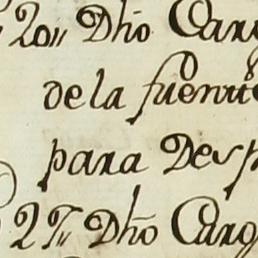 20 Dho Car
de la fuente
para Desp
2 Dho Carg